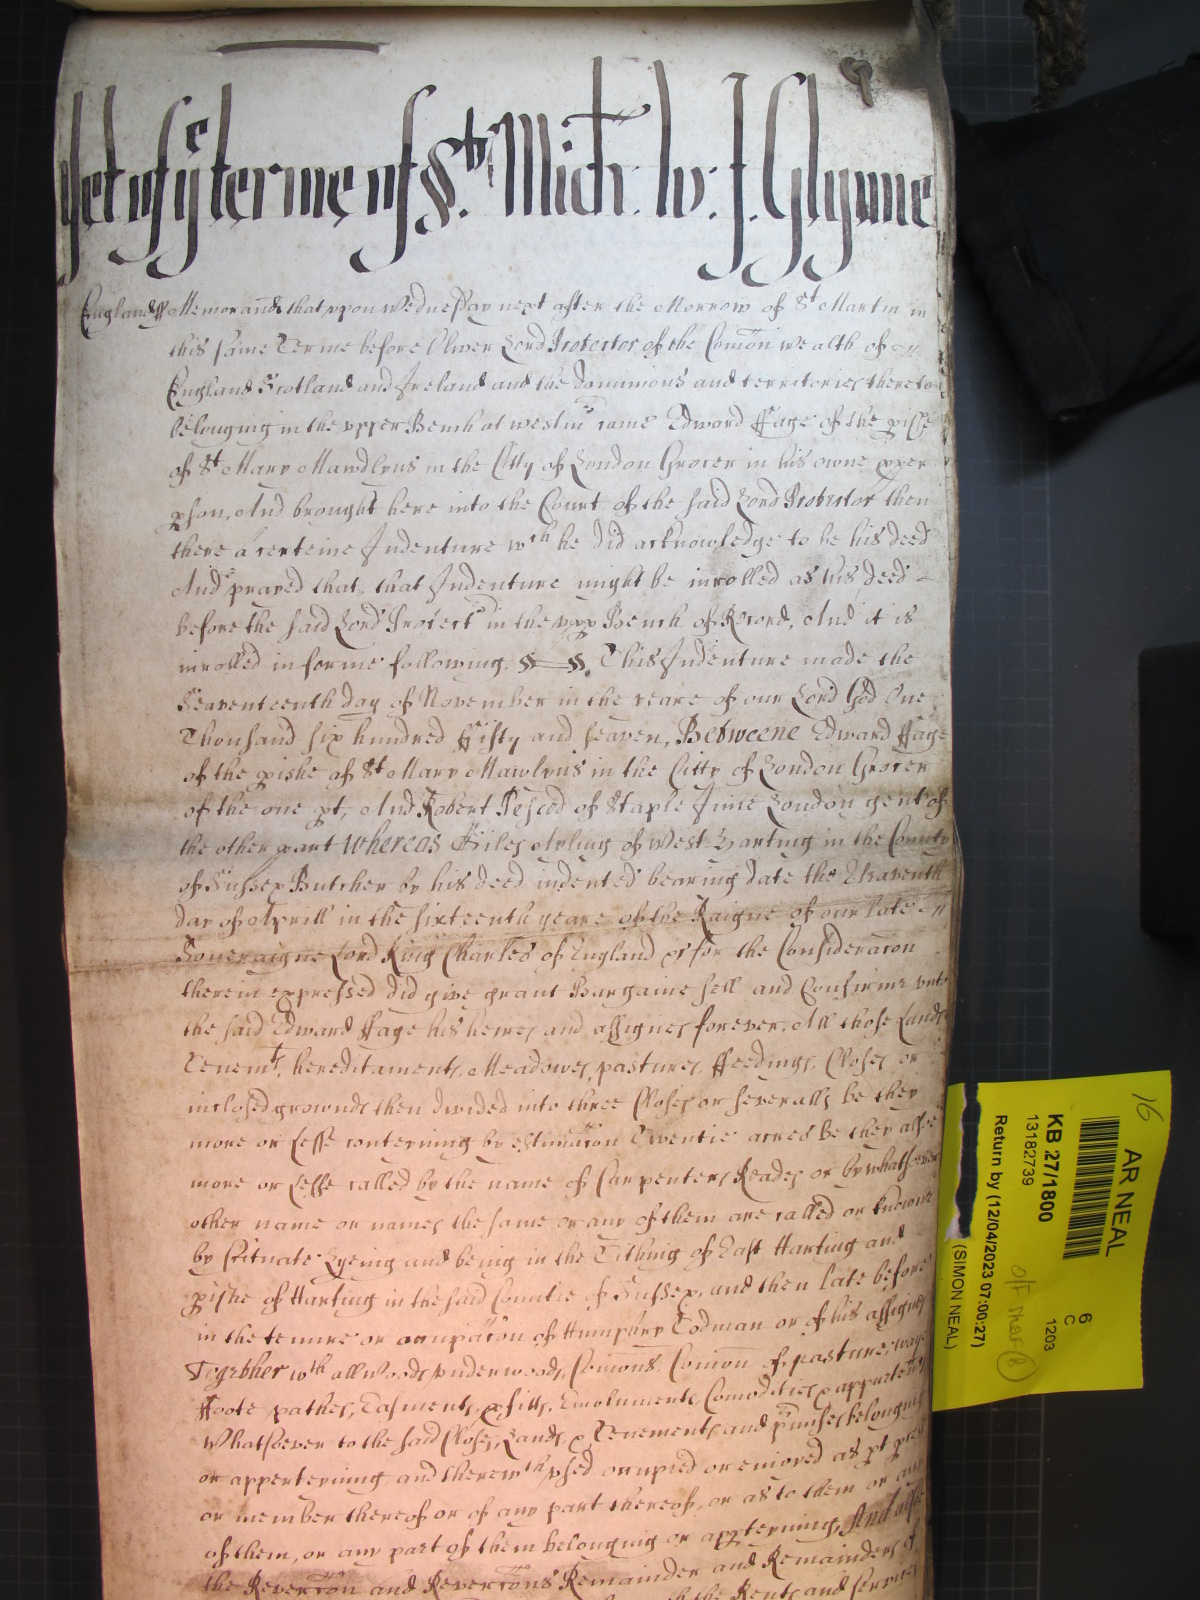 Yet of ye terme of St. Mich: by: J. Glynne
England ss Memorand that upon Wednesday next after the Morrow of St Martin in
this same Terme before Oliver Lord Protector of the Comon wealth of
England Scotland and Ireland and the dominions and territories thereto
belonging in the upper Bench at Westm came Edward ffage of the pishe
of St Mary Mawdlyns in the Citty of London Grocer in his owne pper
pson, And brought here into the Court of the said Lord Protector then
there a certeine Indenture wch he did acknowledge to be his deed
And prayed that, that Indenture might be inrolled as his deed
before the said Lord Protectr in the upp Bench of Record, And it is
inrolled in forme following. ss This Indenture made the
Seaventeenth day of November in the yeare of our Lord God One
Thousand six hundred ffifty and seaven, Betweene Edward ffage
of the pishe of St Mary Mawlyns in the Citty of London Grocer
of the one pt, And Robert Pescod of Staple Inne London gent of
the other part Whereas Giles Ayling of West Harting in the County
of Sussex Butcher by his deed indented bearing date the Eleaventh
day of Aprill in the sixteenth yeare of the Raigne of our late
Soveraigne Lord King Charles of England &c for the Consideracon
therein expressed did give grant Bargaine sell and Confirme unto
the said Edward ffage his heires and assignes forever, All those Lands
Tenemts, hereditaments, Meadowes, pastures, ffeedings, Closes or
inclosed grownds then divided into three Closes or severalls be they
more or lesse conteyning by estimacon Twentie acres be they alsoe
more or lesse called by the name of Carpenters Reades or by whatsoever
other name or names the same or any of them are called or knowne
by scituate Lyeing and being in the Tithing of East Harting and
pishe of Harting in the said Countie of Sussex, and then late before
in the tenure or occupacon of Humphry Todman or of his assignes
Together wth all Woods, underwoods, Comons. Comon of pasture, wayes
ffoote pathes, Easments, pfitts, Emoluments, Comodities & appurtenncs
Whatsoever to the said Closes, Lands & Tenements and pmises belonging
or apperteyning and therewth used occupied or enioyed as pt pcell
or member thereof or of any part thereof, or as to them or any
of them, or any part of them belonging or appteyning, And alsoe
the Revercon and Revercons Remainder and Remainders of
the Rents and services
16
AR NEAL
KB 27/1800
13182739
Return by (12/04/2023 07:00:27)
(SIMON NEAL)
6
C
1203